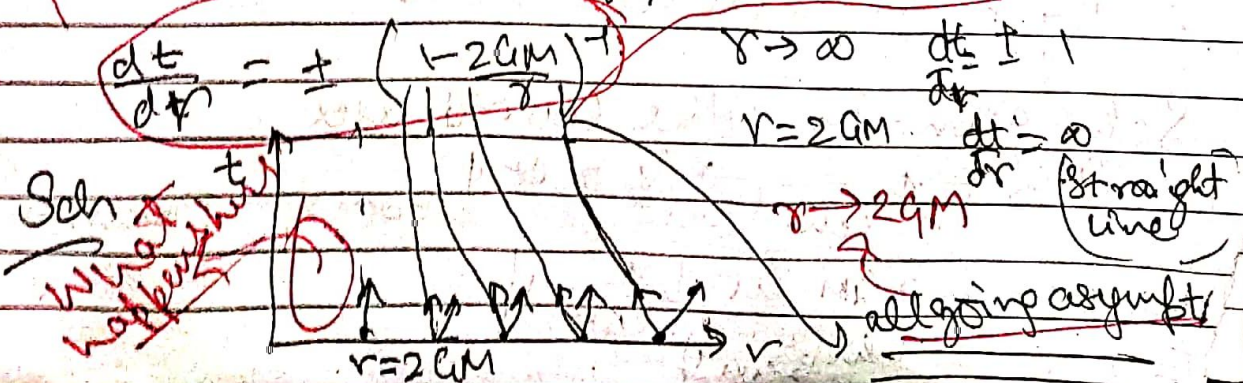 dt/dr = ± (1-2GM/r)^-1
r → ∞ dt/dr = ± 1
r = 2GM dt/dr = ∞
(straight line)
r → 2GM
all going asympt
Sch
t
what happens here
r = 2GM
r